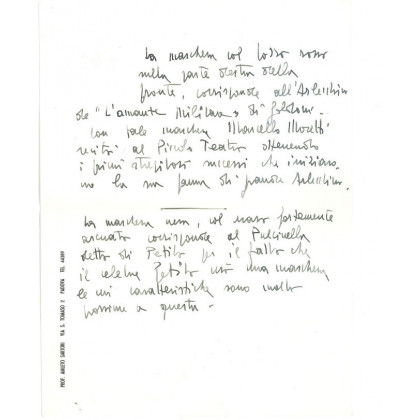 La maschera col bozzo rosso
nella parte destra della
fronte, corrisponde all'Arlecchino
de "L'amante Militare" di Goldoni.
con tale maschera Marcello Moretti
recitò al Piccolo Teatro ottenendo
i primi strepitosi successi che iniziaro-
no la sua fama di grande Arlecchino.
La maschera nera, col naso fortemente
arcuato corrisponde al Pulcinella
detto di Petito per il fatto che
il celebre Petito usò una maschera
le cui caratteristiche sono molto
prossime a questa.
PROF. AMLETO SARTORI VIA S. TOMASO 2 PADOVA TEL.